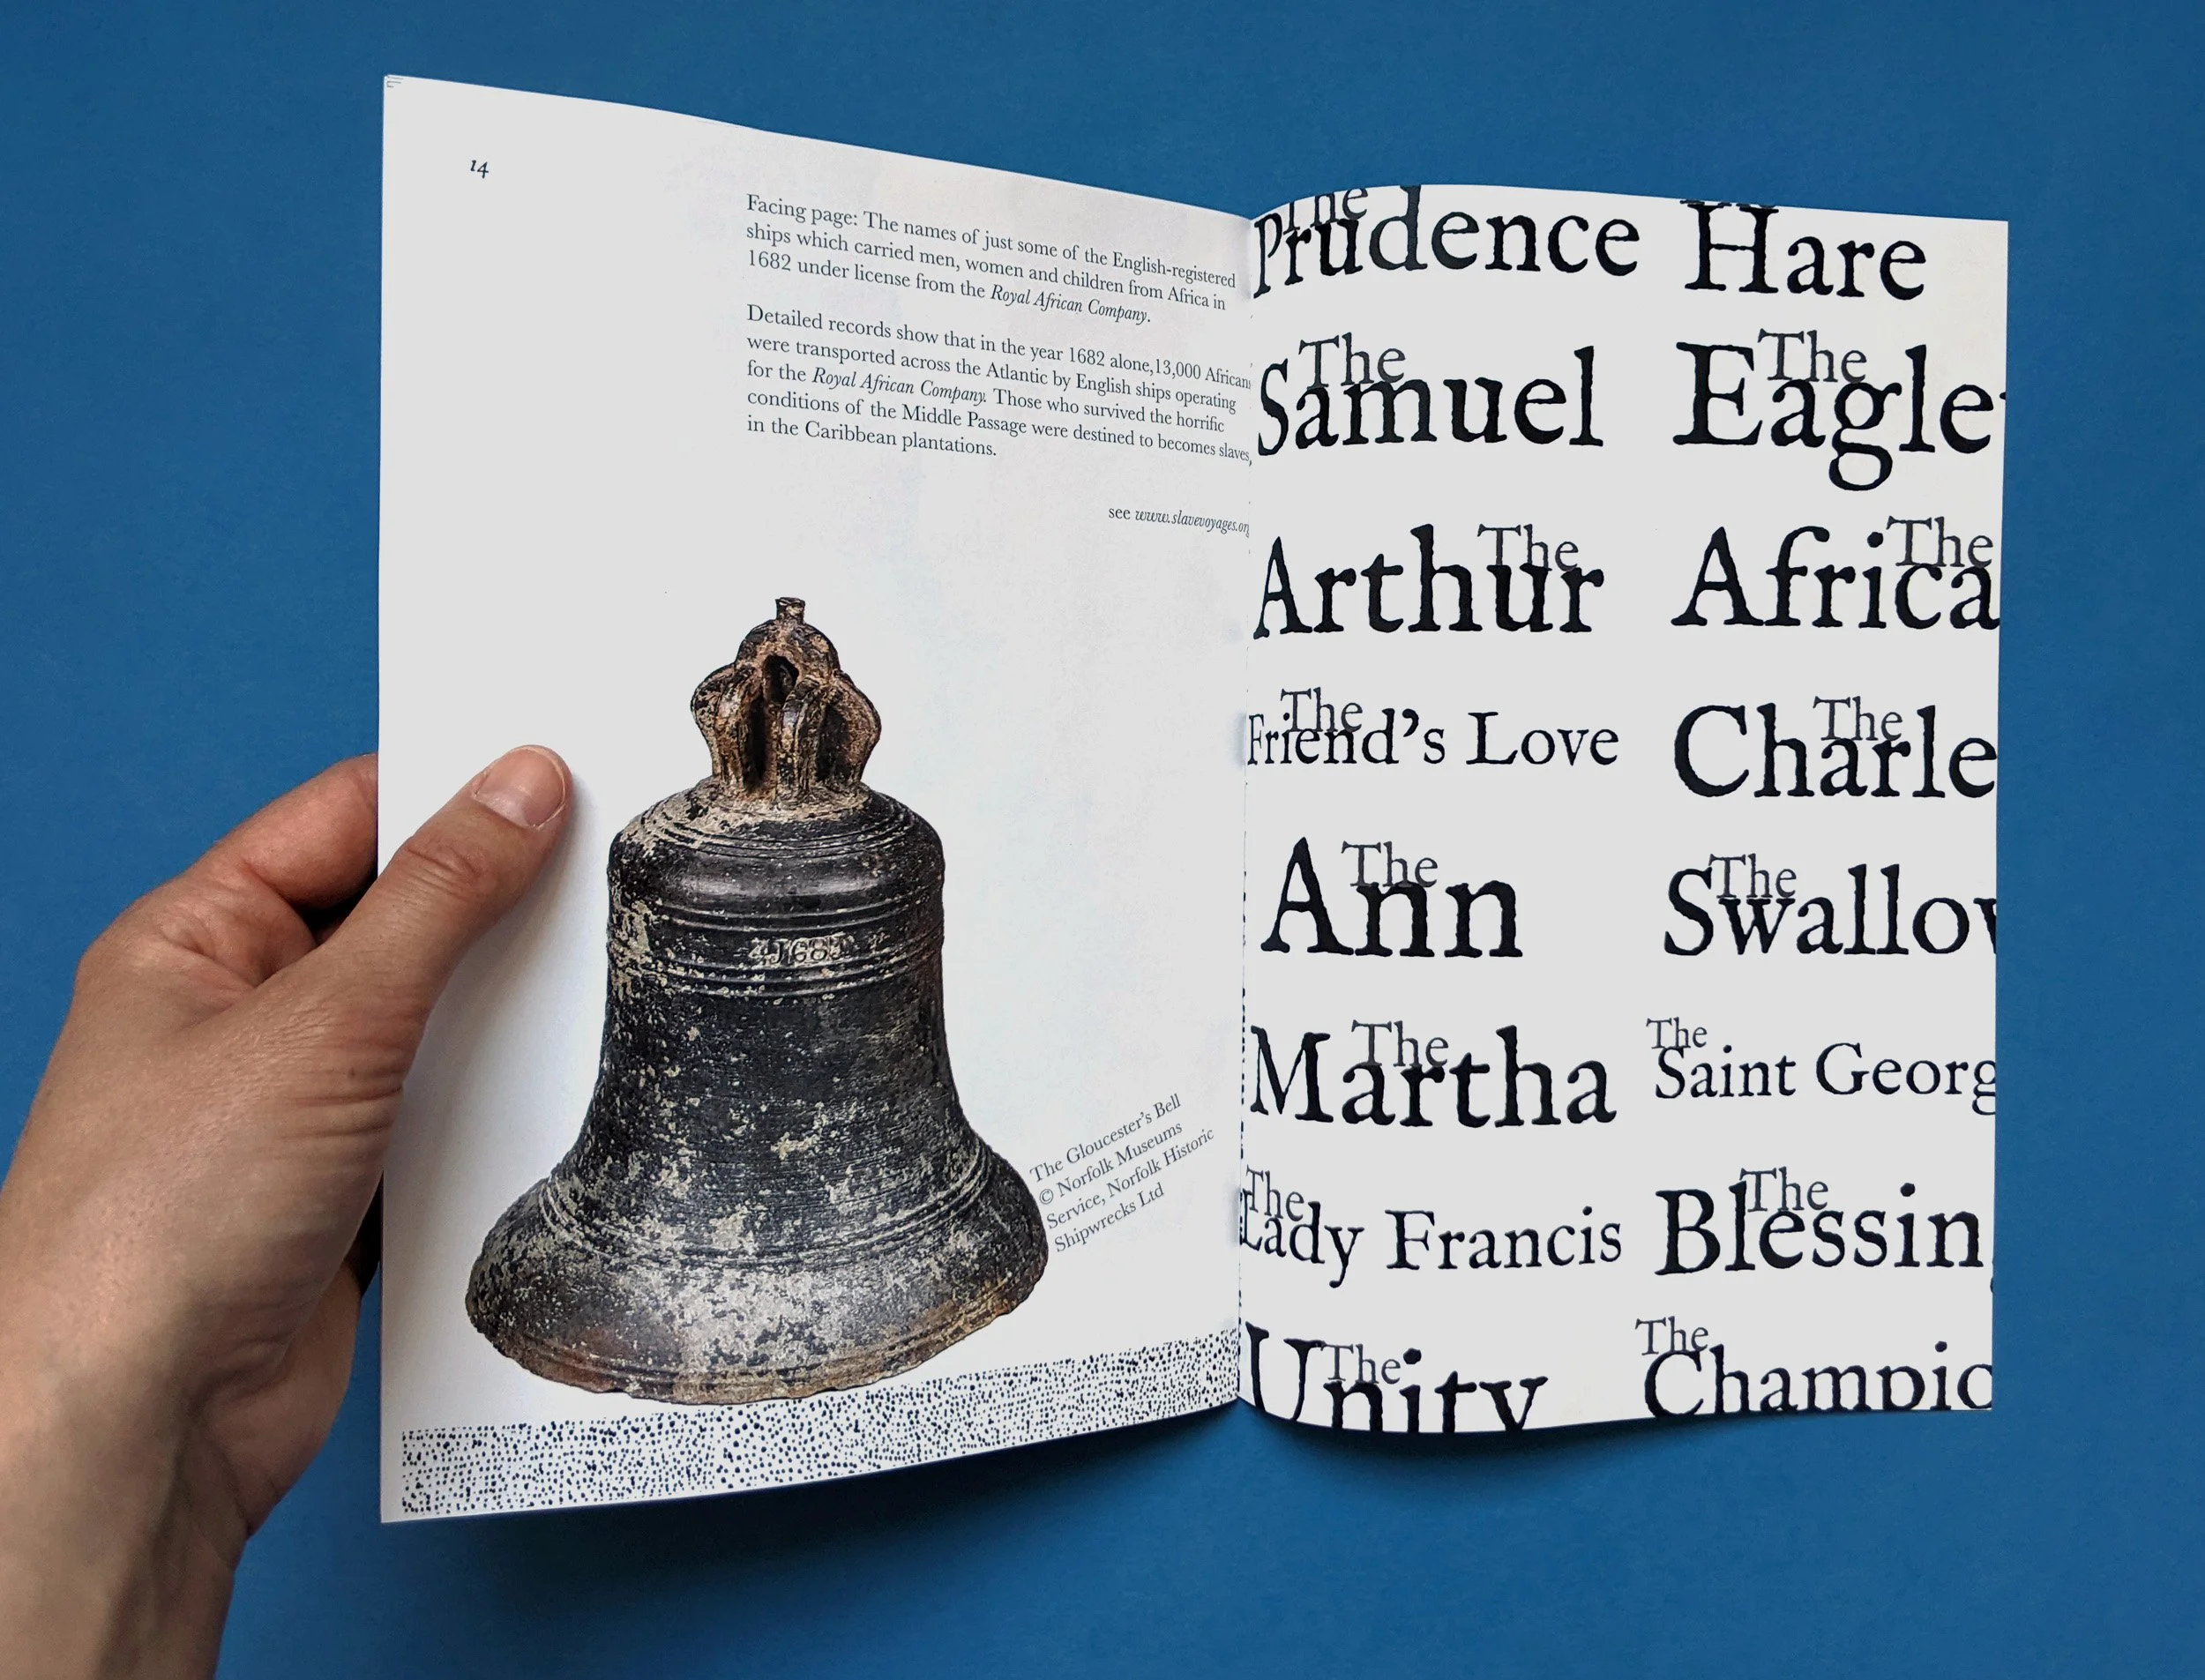 14
Facing page: The names of just some of the English-registered
ships which carried men, women and children from Africa in
1682 under license from the Royal African Company.
Detailed records show that in the year 1682 alone,13,000 Africans
were transported across the Atlantic by English ships operating
for the Royal African Company. Those who survived the horrific
conditions of the Middle Passage were destined to becomes slaves,
in the Caribbean plantations.
see www.slavevoyages.org
The Gloucester's Bell
© Norfolk Museums
Service, Norfolk Historic
Shipwrecks Ltd
The
Prudence
Hare
The
Samuel
The
Eagle
The
Arthur
The
Africa
The
Friend's Love
The
Charle
The
Ann
The
Swallow
The
Martha
The
Saint Georg
The
Lady Francis
The
Blessin
The
Unity
The
Champio